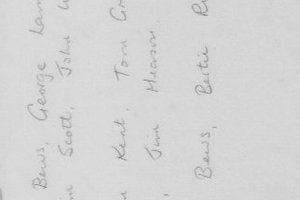 Bews, George
Scott, John
Kent, Tom
Jim Hearson
Bews, Bertie